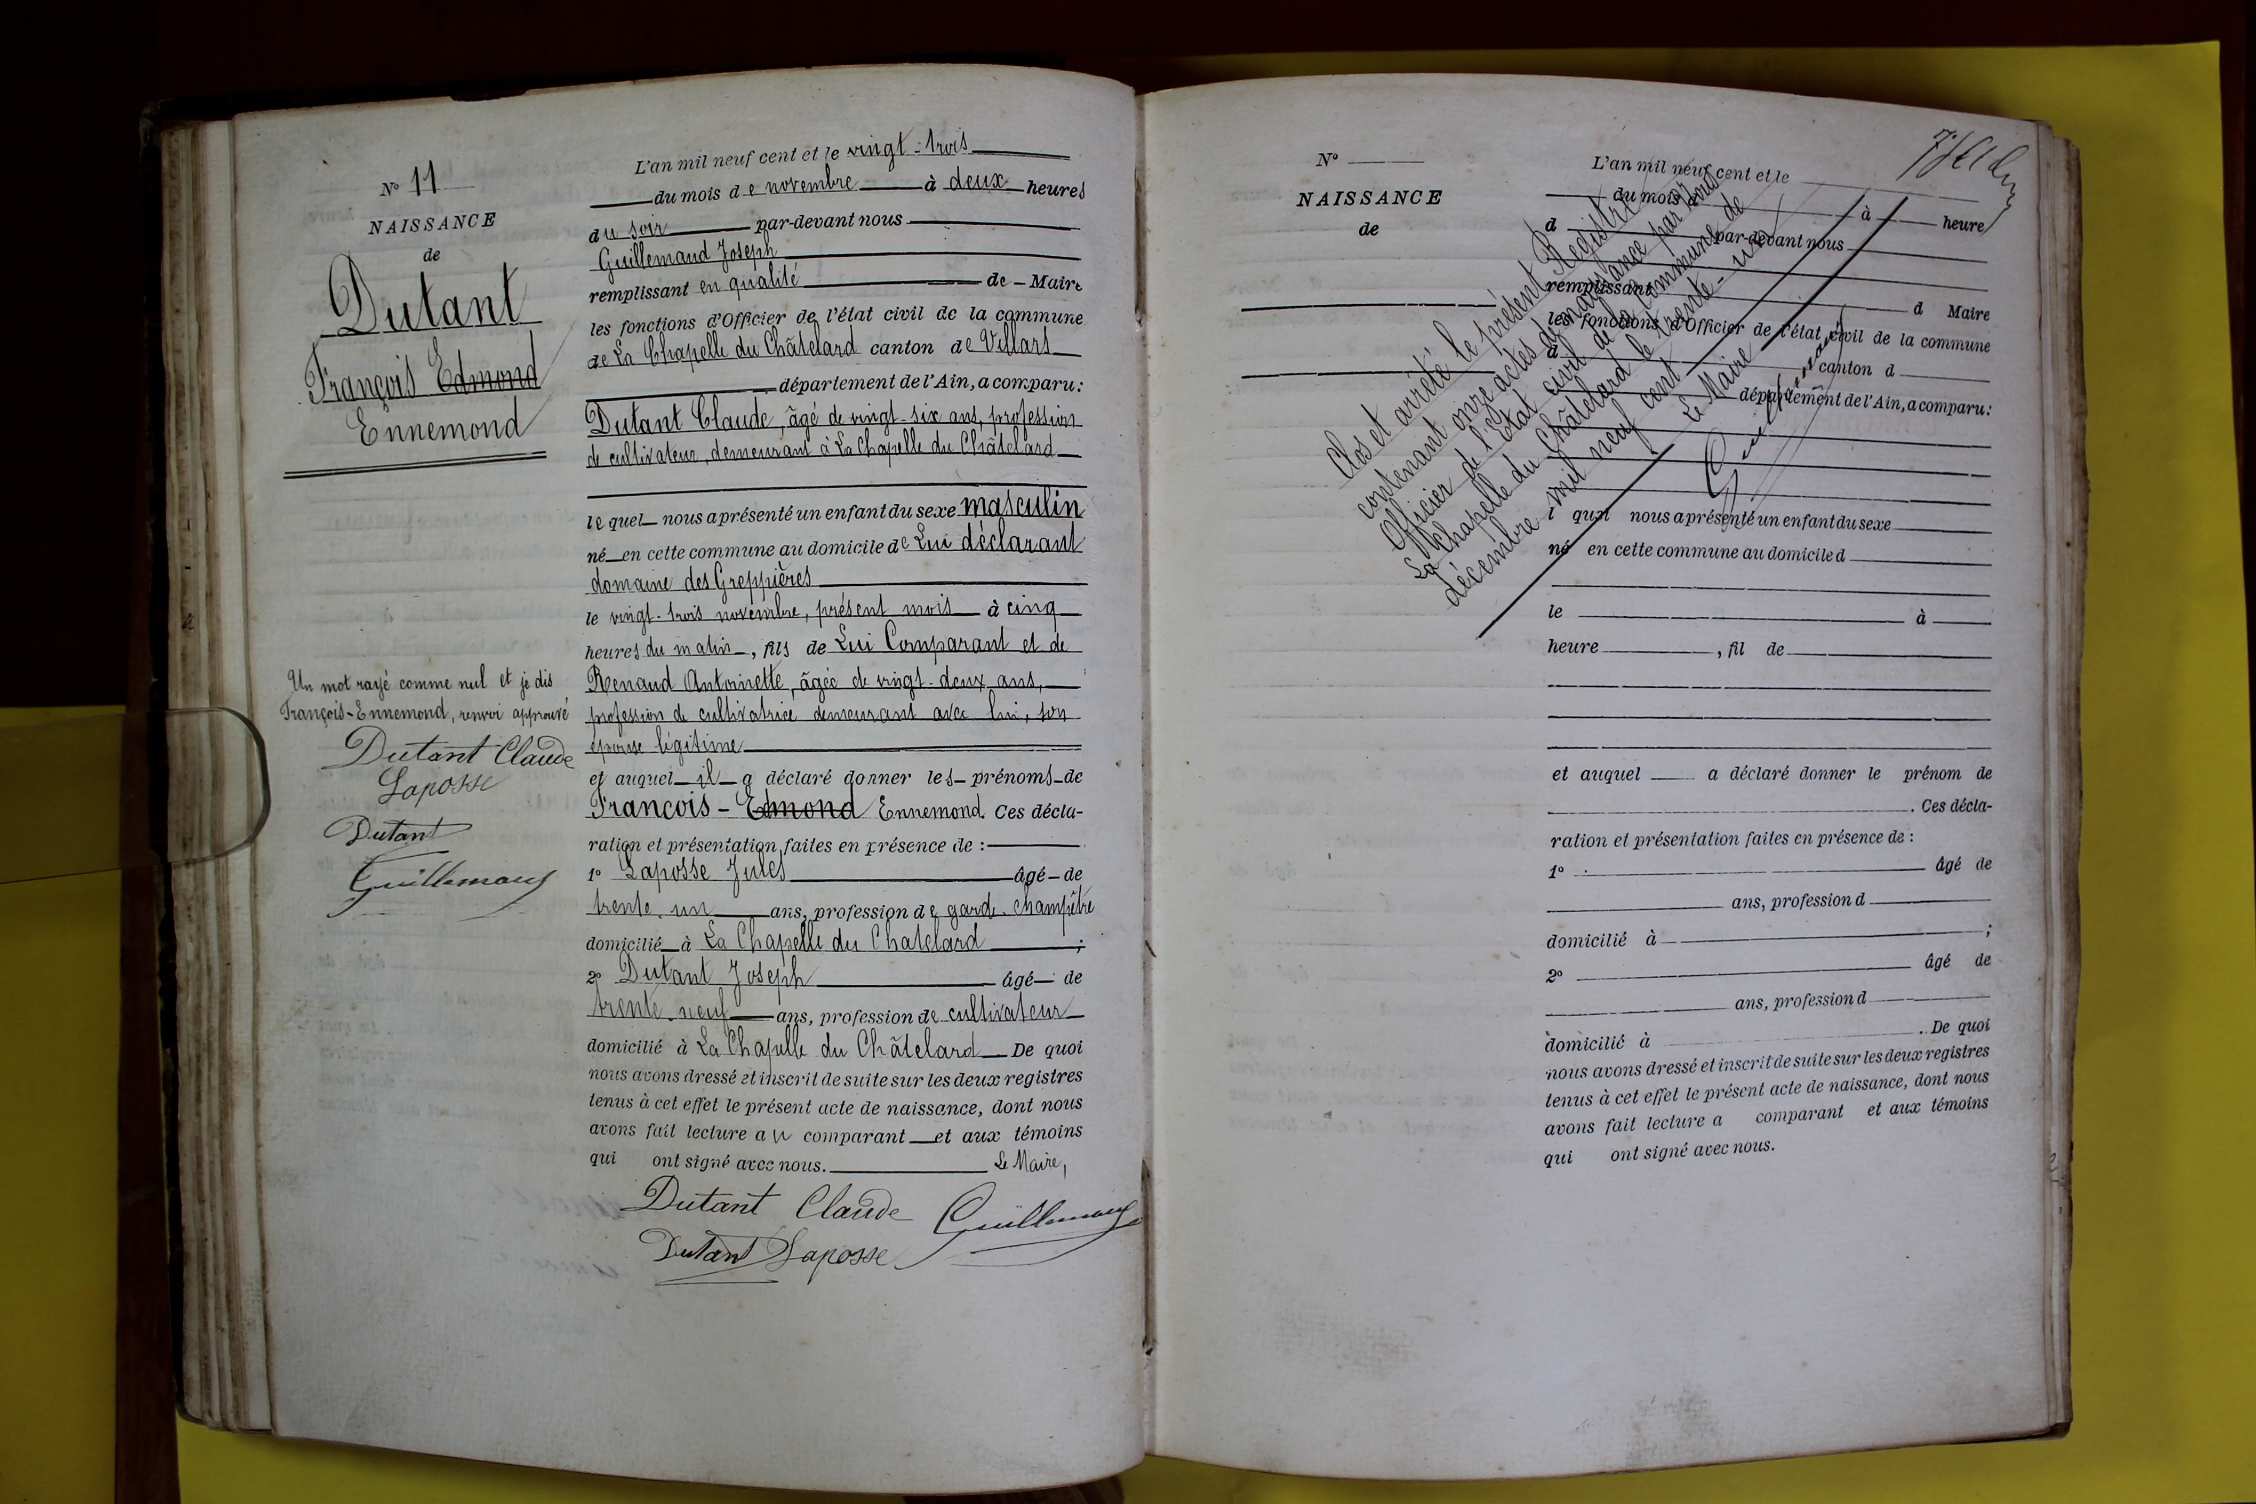 N° 11
NAISSANCE
de
Dutant
François Edmond
Ennemond
Un mot rayé comme nul et je dis
François-Ennemond, renvoi approuvé
Dutant Claude
Laposse
Dutant
Guillemaud
L'an mil neuf cent et le vingt-trois
du mois de novembre à deux heures
du soir par-devant nous
Guillemaud Joseph
remplissant en qualité de Maire
les fonctions d'Officier de l'état civil de la commune
de La Chapelle du Châtelard canton de Villars
département de l'Ain, a comparu:
Dutant Claude, âgé de vingt-six ans, profession
de cultivateur, demeurant à La Chapelle du Châtelard
lequel nous a présenté un enfant du sexe masculin
né en cette commune au domicile de Lui déclarant
domaine des Greppières
le vingt-trois novembre, présent mois à cinq
heures du matin, fils de Lui Comparant et de
Renaud Antoinette, âgée de vingt-deux ans,
profession de cultivatrice demeurant avec lui, son
épouse légitime
et auquel il a déclaré donner les prénoms de
François - Edmond Ennemond. Ces décla-
ration et présentation faites en présence de :
1° Laposse Jules âgé de
trente-un ans, profession de garde-champêtre
domicilié à La Chapelle du Chatelard ;
2° Dutant Joseph âgé de
trente-neuf ans, profession de cultivateur
domicilié à La Chapelle du Châtelard De quoi
nous avons dressé et inscrit de suite sur les deux registres
tenus à cet effet le présent acte de naissance, dont nous
avons fait lecture au comparant et aux témoins
qui ont signé avec nous. Le Maire,
Dutant Claude Guillemaud
Dutant Laposse
N°
NAISSANCE
de
L'an mil neuf cent et le
du mois d à heure
d par-devant nous
remplissant d Maire
les fonctions d'Officier de l'état civil de la commune
d canton d
département de l'Ain, a comparu:
l quel nous a présenté un enfant du sexe
né en cette commune au domicile d
le à
heure , fil de
et auquel a déclaré donner le prénom de
. Ces décla-
ration et présentation faites en présence de :
1° âgé de
ans, profession d
domicilié à ;
2° âgé de
ans, profession d
domicilié à . De quoi
nous avons dressé et inscrit de suite sur les deux registres
tenus à cet effet le présent acte de naissance, dont nous
avons fait lecture a comparant et aux témoins
qui ont signé avec nous.
Clos et arrêté le présent Registre
contenant onze actes de naissance par Nous
Officier de l'Etat civil de la commune de
La Chapelle du Châtelard le trente-un
décembre mil neuf cent
Le Maire
Guillemaud